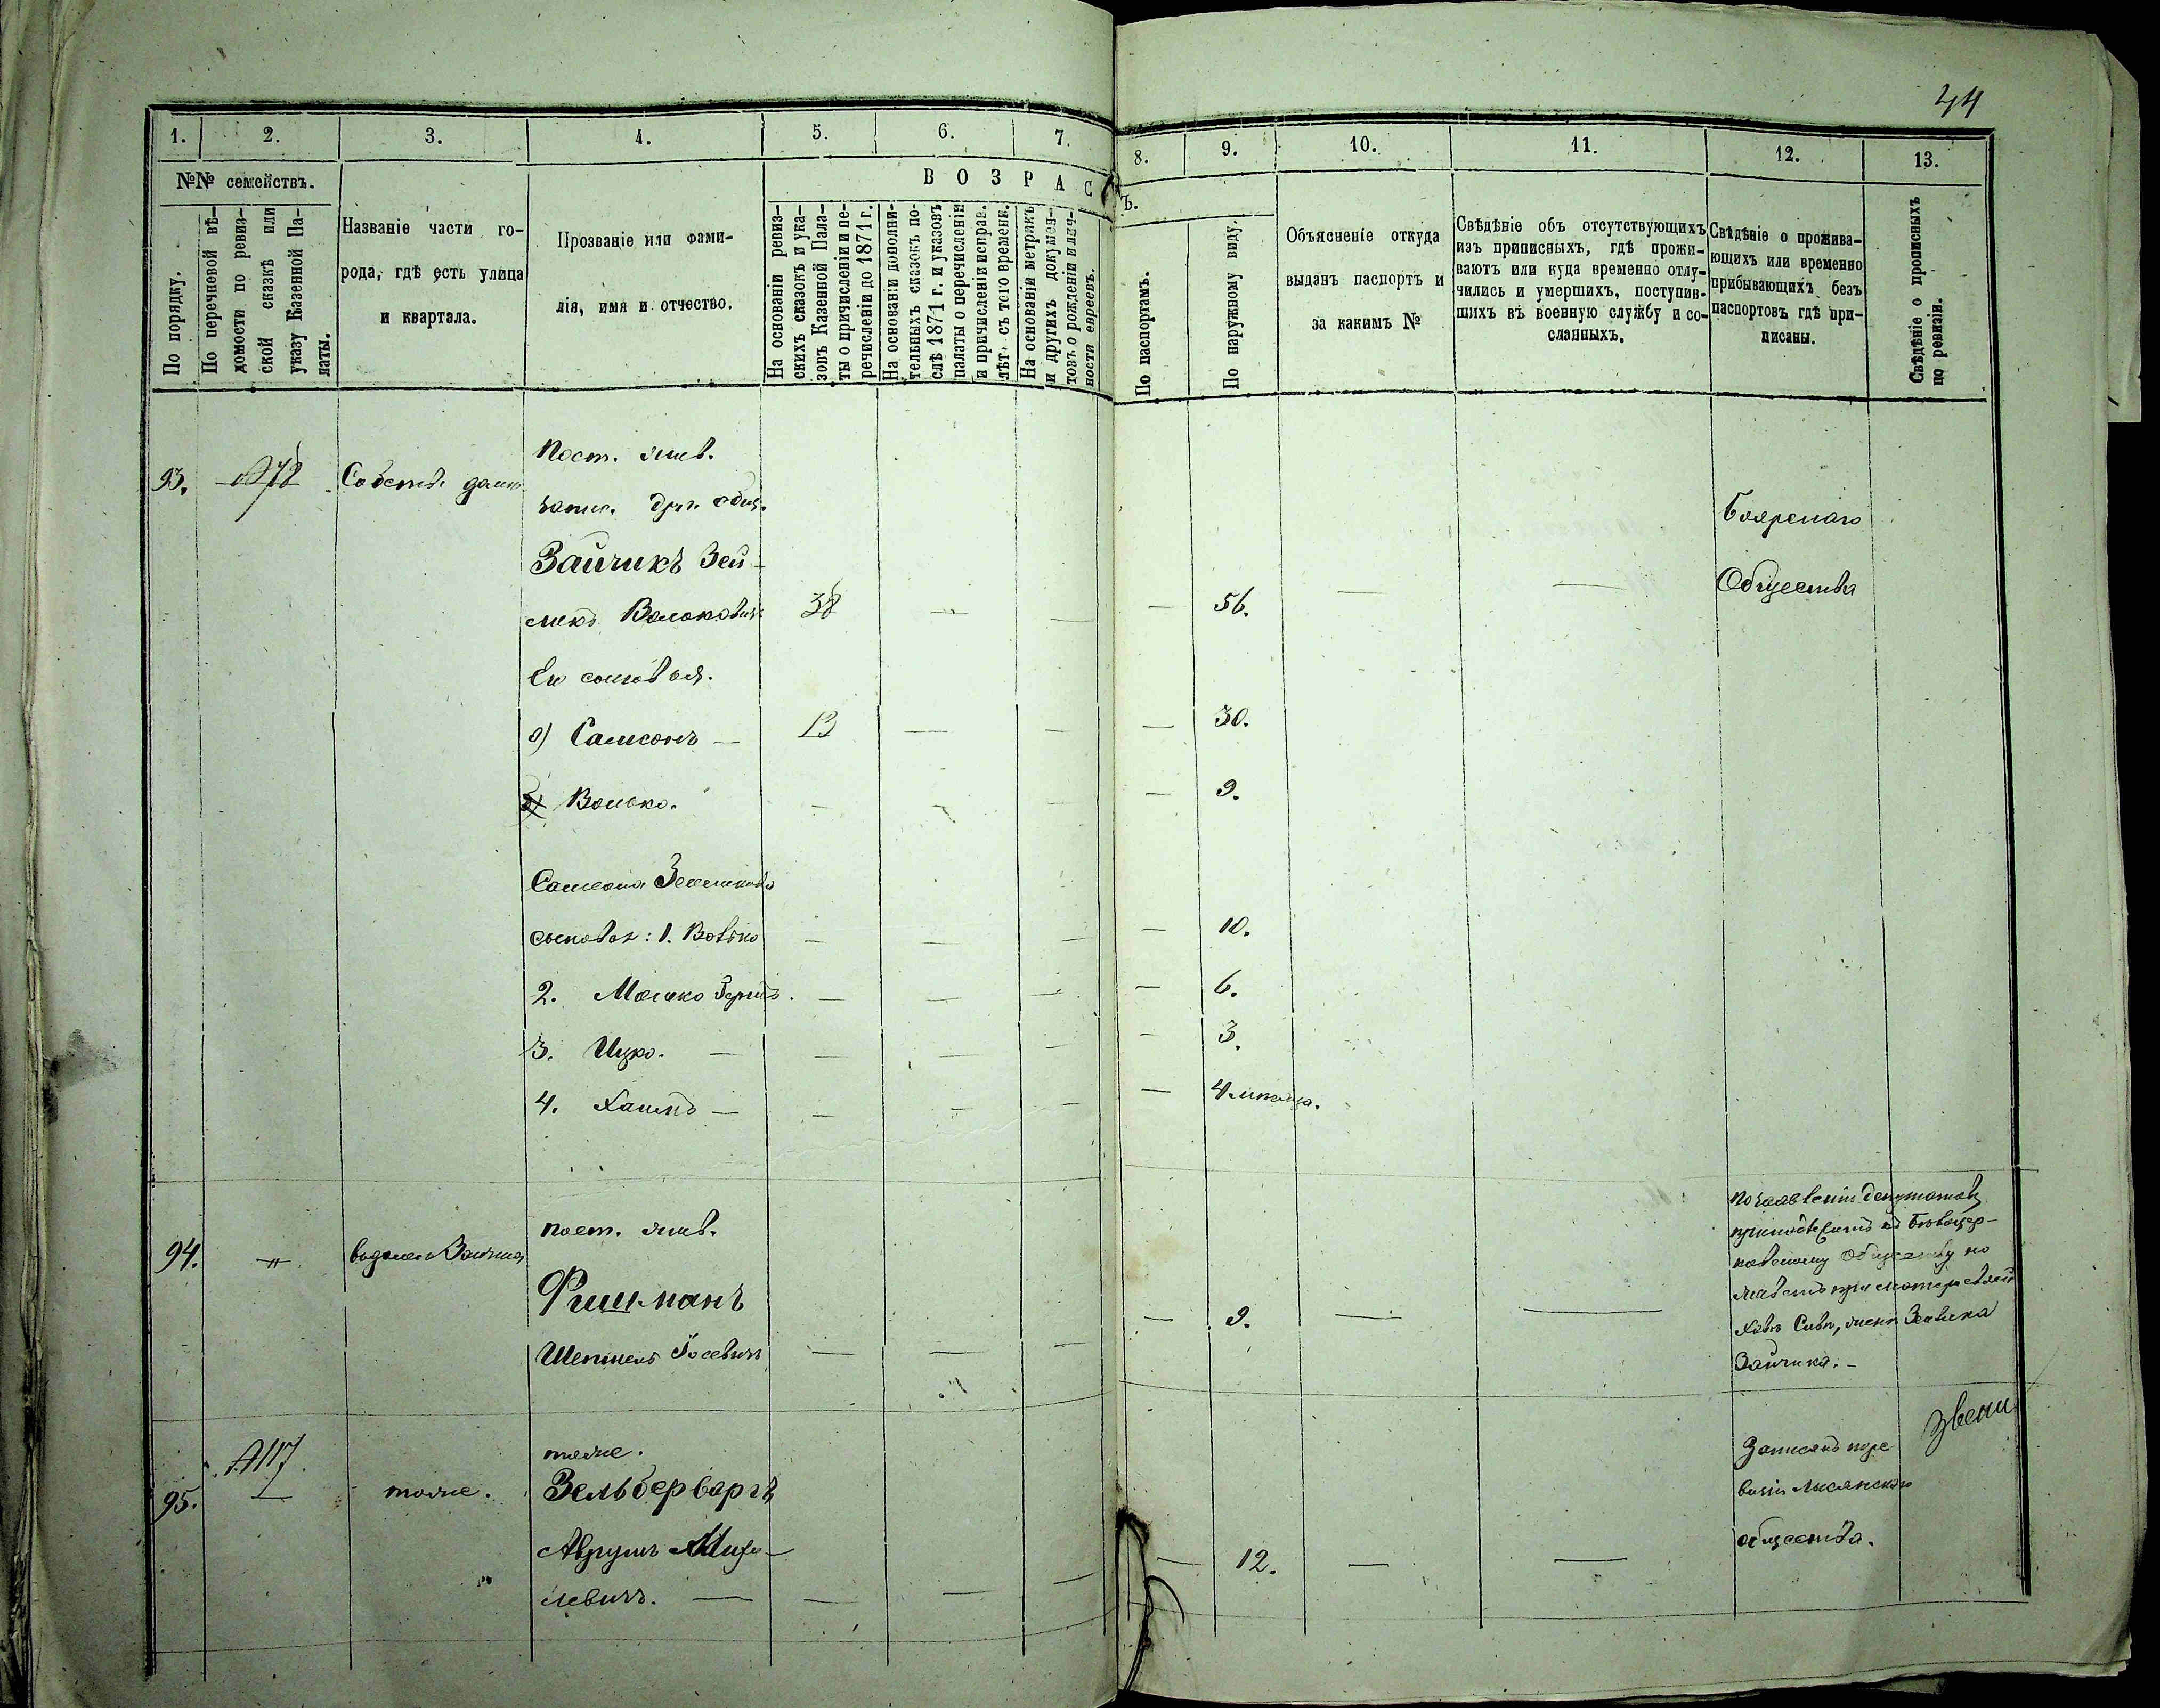 44
1. 2. 3. 4. 5. 6. 7. 8. 9. 10. 11. 12. 13.
№№ семействъ.
По порядку.
По перечневой вѣ-
домости по ревиз-
ской сказкѣ или
указу Казенной Па-
латы.
Названіе части го-
рода, гдѣ есть улица
и квартала.
Прозваніе или фами-
лія, имя и отчество.
ВОЗРАСТЪ.
На основаніи ревиз-
скихъ сказокъ и ука-
зовъ Казенной Пала-
ты о причисленіи и пе-
речисленіи до 1871 г.
На основаніи дополни-
тельныхъ сказокъ по-
слѣ 1871 г. и указовъ
палаты о перечисленіи
и причисленіи исправ.
лѣт. съ того времени.
На основаніи метрикъ
и другихъ докумен-
товъ о рожденіи и лич-
ности евреевъ.
По паспортамъ.
По наружному виду.
Объясненіе откуда
выданъ паспортъ и
за какимъ №
Свѣдѣніе объ отсутствующихъ
изъ приписныхъ, гдѣ прожи-
ваютъ или куда временно отлу-
чились и умершихъ, поступив-
шихъ въ военную службу и со-
сланныхъ.
Свѣдѣніе о прожива-
ющихъ или временно
прибывающихъ безъ
паспортовъ гдѣ при-
писаны.
Свѣдѣніе о прописныхъ
по ревизіи.
93. №78 Собств. домъ
Пост. жив.
запис. др. общ.
Зайчикъ Зей-
ликъ Вольковичъ 38 — — — 56. — —
Боярскаго
Общества
Его сыновья.
а) Самсонъ — 13 — — — 30.
б) Волько. — — — 9.
Самсона Зеликова
сыновья: 1. Вовко — — — — 10.
2. Мошко Герш. — — — — 6.
3. Ицко. — — — — — 3.
4. Хаимъ — — — — — 4 мѣсяца.
94. „ въ домѣ Зайчика
пост. жив.
Фишманъ
Шепшель Іосевичъ — — — — 9. — —
По заявленію депутатовъ
къ Бѣлоцер-
ковскому Обществу но
при матери своей
Хавѣ женѣ Зелика
Зайчика. —
95. №117 тоже.
тоже.
Зельберваргъ
Аврумъ
левичъ. — — — — — 12. — —
Записанъ
Лысянскаго
общества.